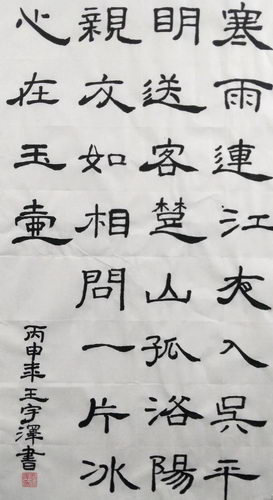 寒雨連江夜入吳平
明送客楚山孤洛陽
親友如相問一片冰
心在玉壺
丙申年王宇澤書